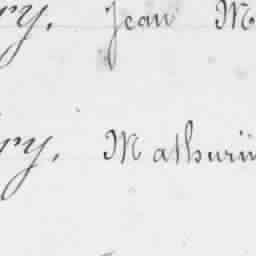 ry, Jean M
ry, Mathurin